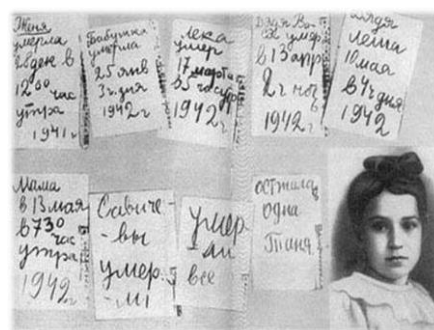 Женя
умерла
28 дек в
12 00
час
утра
1941 г
Бабушка
умерла
25 янв
3 ч. дня
1942 г
Лека
умер
17 марта
в 5 час утр
1942 г
Дядя Ва-
ся умер
в 13 апр
2 ч ноч
1942 г
Дядя
Леша
10 мая
в 4 ч дня
1942
Мама
в 13 мая
в 7 30
час
утра
1942 г
Савиче-
-вы
умер-
-ли
умер
-ли
все
осталась
одна
Таня